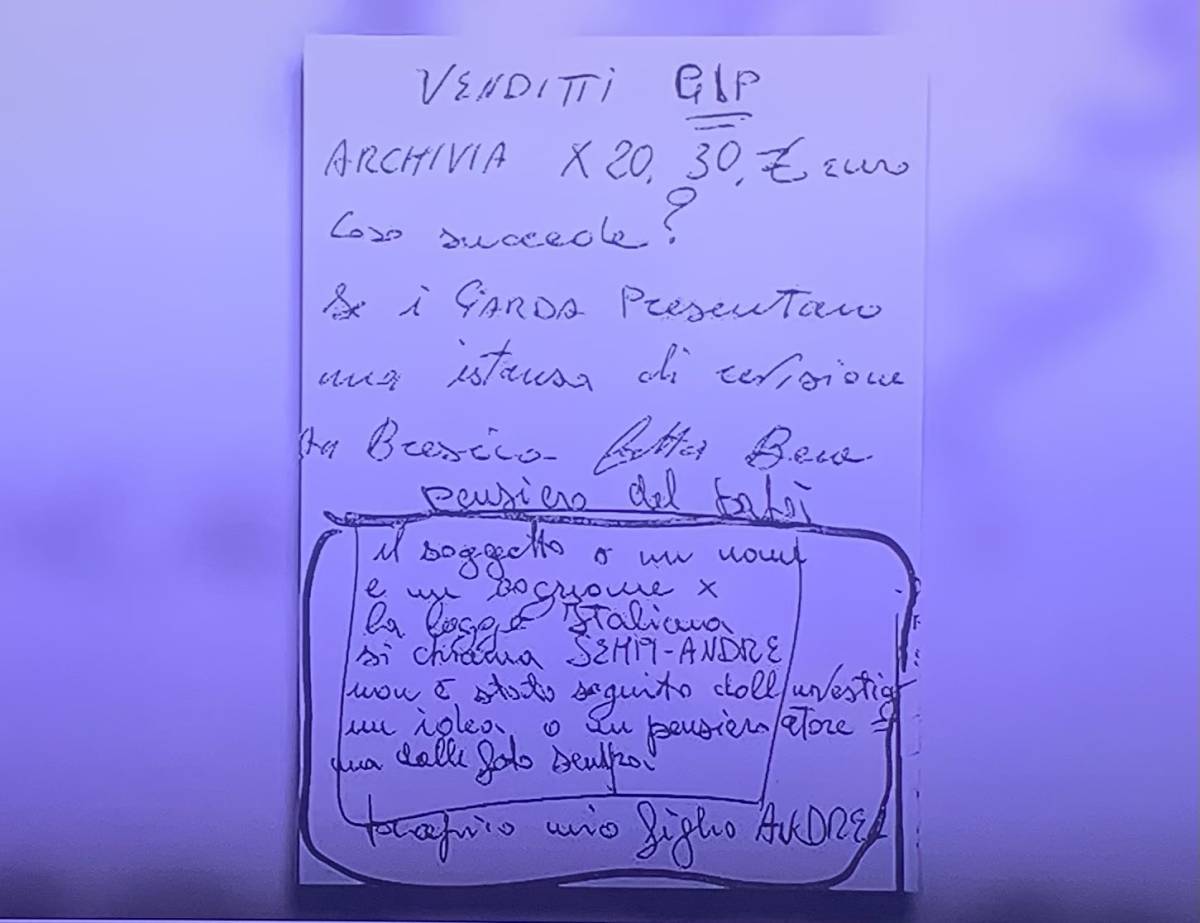 VENDITTI GIP
ARCHIVIA X 20. 30. € euro
Coso succede?
Se i GARDA Presentano
una istansa di revisione
Brescia fatta Bene
pensiero del
il soggetto o un nome
e un cognome x
la legge Italiana
si chiama SEMPI-ANDRE
non è stato seguito dall investig
un idea o un pensiero atore =
ma dalle foto
mio figlio ANDREA